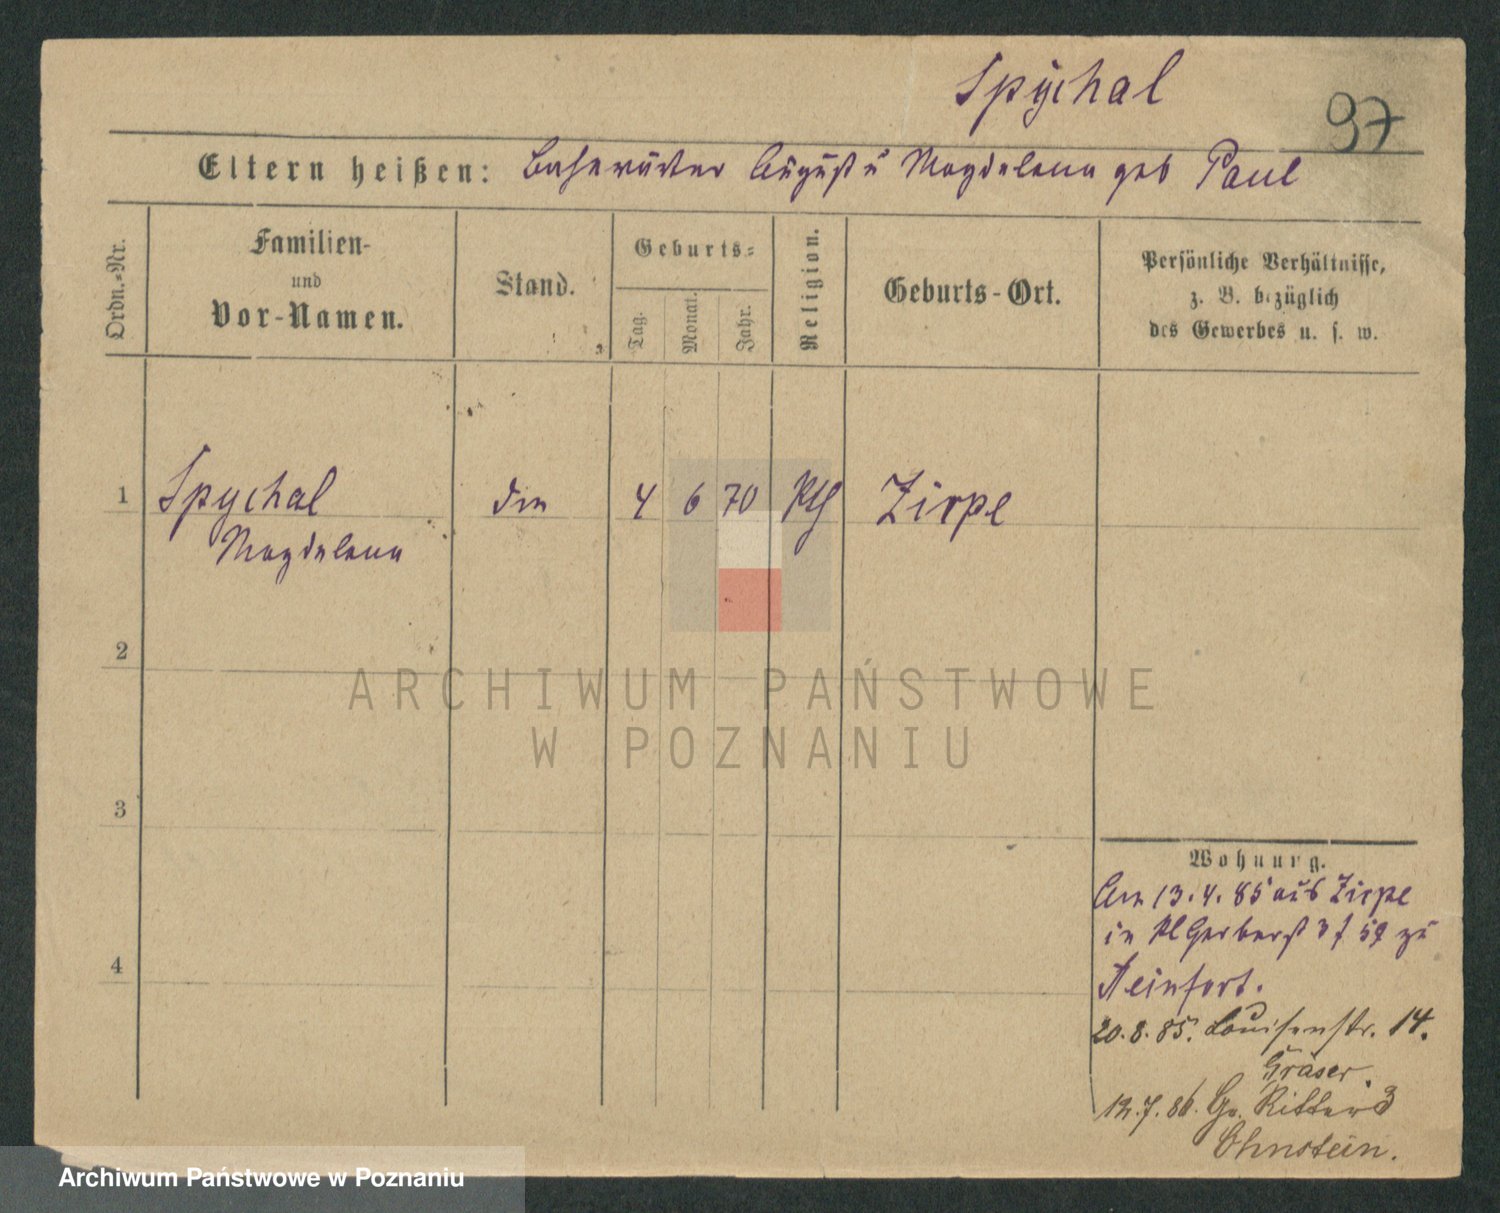 Spÿchal
97
Eltern heißen: Bahnwärter August u Magdalena geb Paul
Ordn.-Nr.
Familien-
und
Vor-Namen.
Stand.
Geburts-
Tag.
Monat.
Jahr.
Religion.
Geburts-Ort.
Persönliche Verhältnisse,
z. B. bezüglich
des Gewerbes u. s. w.
1 Spychal 4 6 70 Kth Zirpe
Magdalena
2
3
4
Wohnung.
Am 13.4.85 aus Zirpe
in Kl Gerberst zu
20.8.85. Louisenstr. 14.
Gräser.
12.7.86. Gr. Ritter 3
Ohnstein.
ARCHIWUM PAŃSTWOWE
W POZNANIU
Archiwum Państwowe w Poznaniu